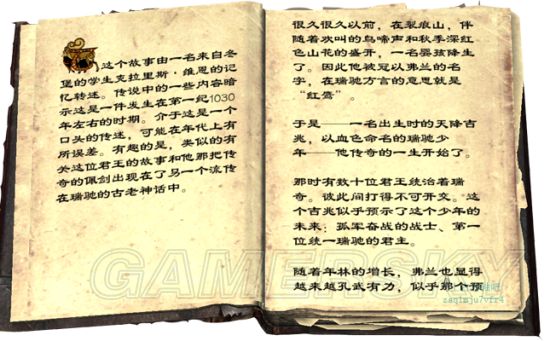 这个故事由一名来自冬
堡的学生克拉里斯·维恩的记
忆转述。传说中的一些内容暗
示这是一件发生在第一纪1030
年左右的时期。介于这是一个
口头的传述,可能在年代上有
所误差。有趣的是,类似的有
关这位君王的故事和他那把传
奇的佩剑出现在了另一个流传
在瑞驰的古老神话中。
很久很久以前,在裂痕山,伴
随着欢叫的鸟啼声和秋季深红
色山花的盛开,一名婴孩降生
了。因此他被冠以弗兰的名
字,在瑞驰方言的意思就是
“红鹰”。
于是——一名出生时的天降吉
兆,以血色命名的瑞驰少
年——他传奇的一生开始了。
那时有数十位君王统治着瑞
奇。彼此间打得不可开交。这
个吉兆似乎预示了这个少年的
未来:孤军奋战的战士、第一
位统一瑞驰的君主。
随着年林的增长,弗兰也显得
越来越孔武有力,似乎那个预
GAMERSKY
zaq1mju7vfr4